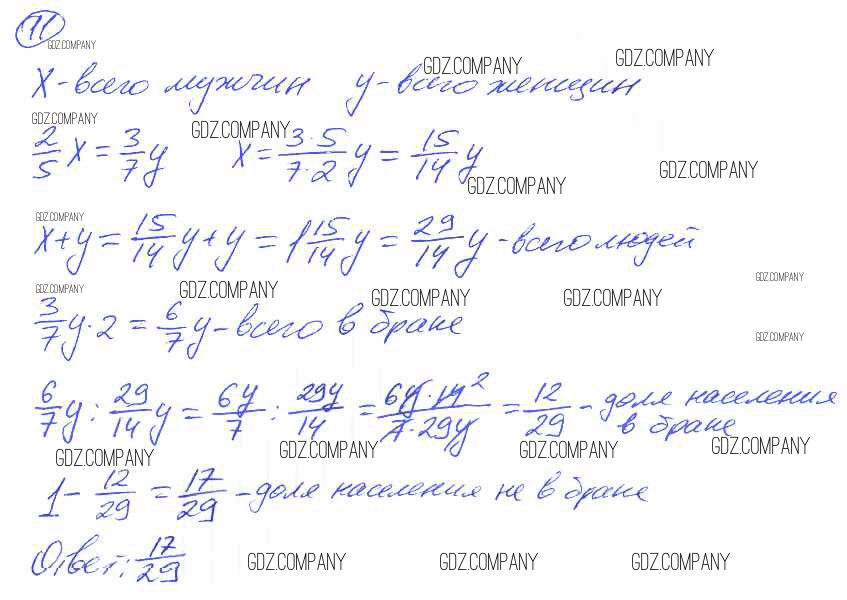 11
GDZ.COMPANY
X - всего мужчин y - всего женщин
GDZ.COMPANY GDZ.COMPANY
GDZ.COMPANY GDZ.COMPANY
2/5 x = 3/7 y x = 3·5/7·2 y = 15/14 y
GDZ.COMPANY GDZ.COMPANY
GDZ.COMPANY
x + y = 15/14 y + y = 1 15/14 y = 29/14 y - всего людей
GDZ.COMPANY
GDZ.COMPANY GDZ.COMPANY GDZ.COMPANY GDZ.COMPANY
3/7 y · 2 = 6/7 y - всего в браке
GDZ.COMPANY
6/7 y : 29/14 y = 6y/7 : 29y/14 = 6y·14 2/7·29y = 12/29 - доля населения
в браке
GDZ.COMPANY GDZ.COMPANY GDZ.COMPANY GDZ.COMPANY
1 - 12/29 = 17/29 - доля населения не в браке
Ответ: 17/29
GDZ.COMPANY GDZ.COMPANY GDZ.COMPANY